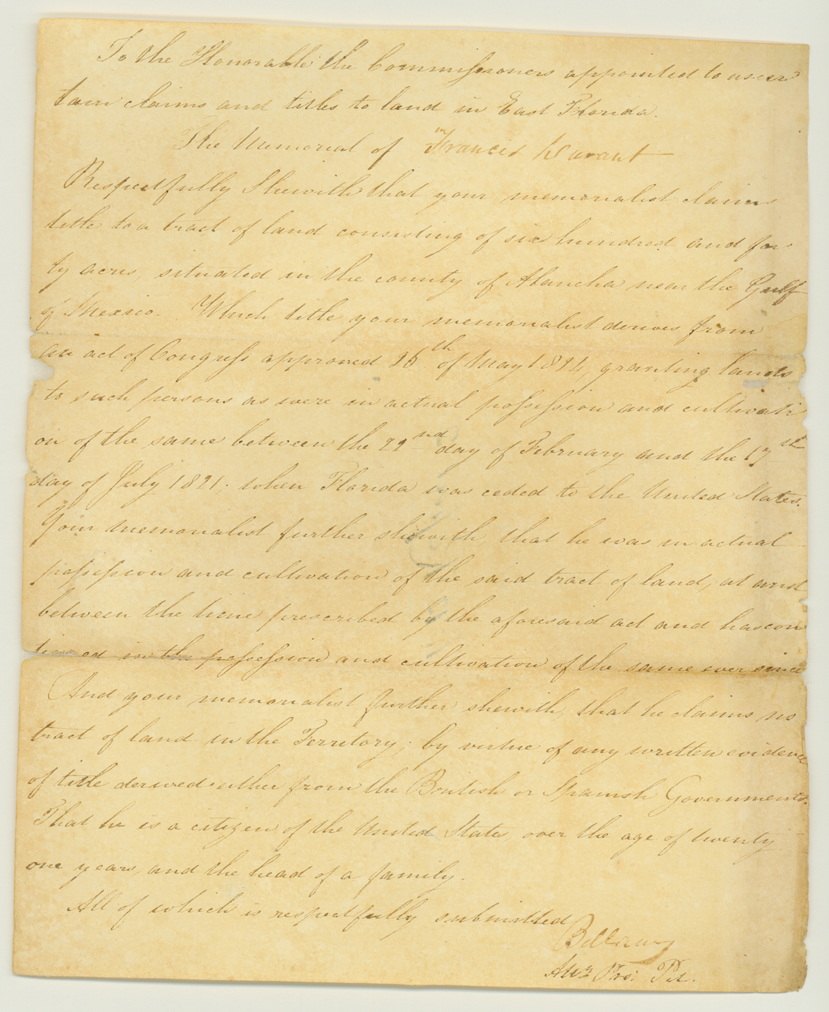 To the Honorable the Commissioners appointed to ascer
tain claims and titles to land in East Florida.
The Memorial of Frances Durant
Respectfully Shewith that your memorialist claims
title to a tract of land consisting of six hundred and for
ty acres, situated in the county of Alancha near the Gulf
of Mexico. Which title your memorialist derives from
an act of Congress approved of May 1824, granting lands
to such persons as were in actual possession and cultivati
on of the same between the 22nd day of February and the 17th
day of July 1821. when Florida was ceded to the United States.
Your memorialist further shewith, that he was in actual
possession and cultivation of the said tract of land, at and
between the time prescribed by the aforesaid act and has con
tinued in the possession and cultivation of the same ever since
And your memorialist further shewith that he claims no
tract of land in the Territory, by virtue of any written evidence
of title derived either from the British or Spanish Governments.
That he is a citizen of the United States over the age of twenty
one years and the head of a family.
All of which is respectfully submitted
Bellamy
for Pet.